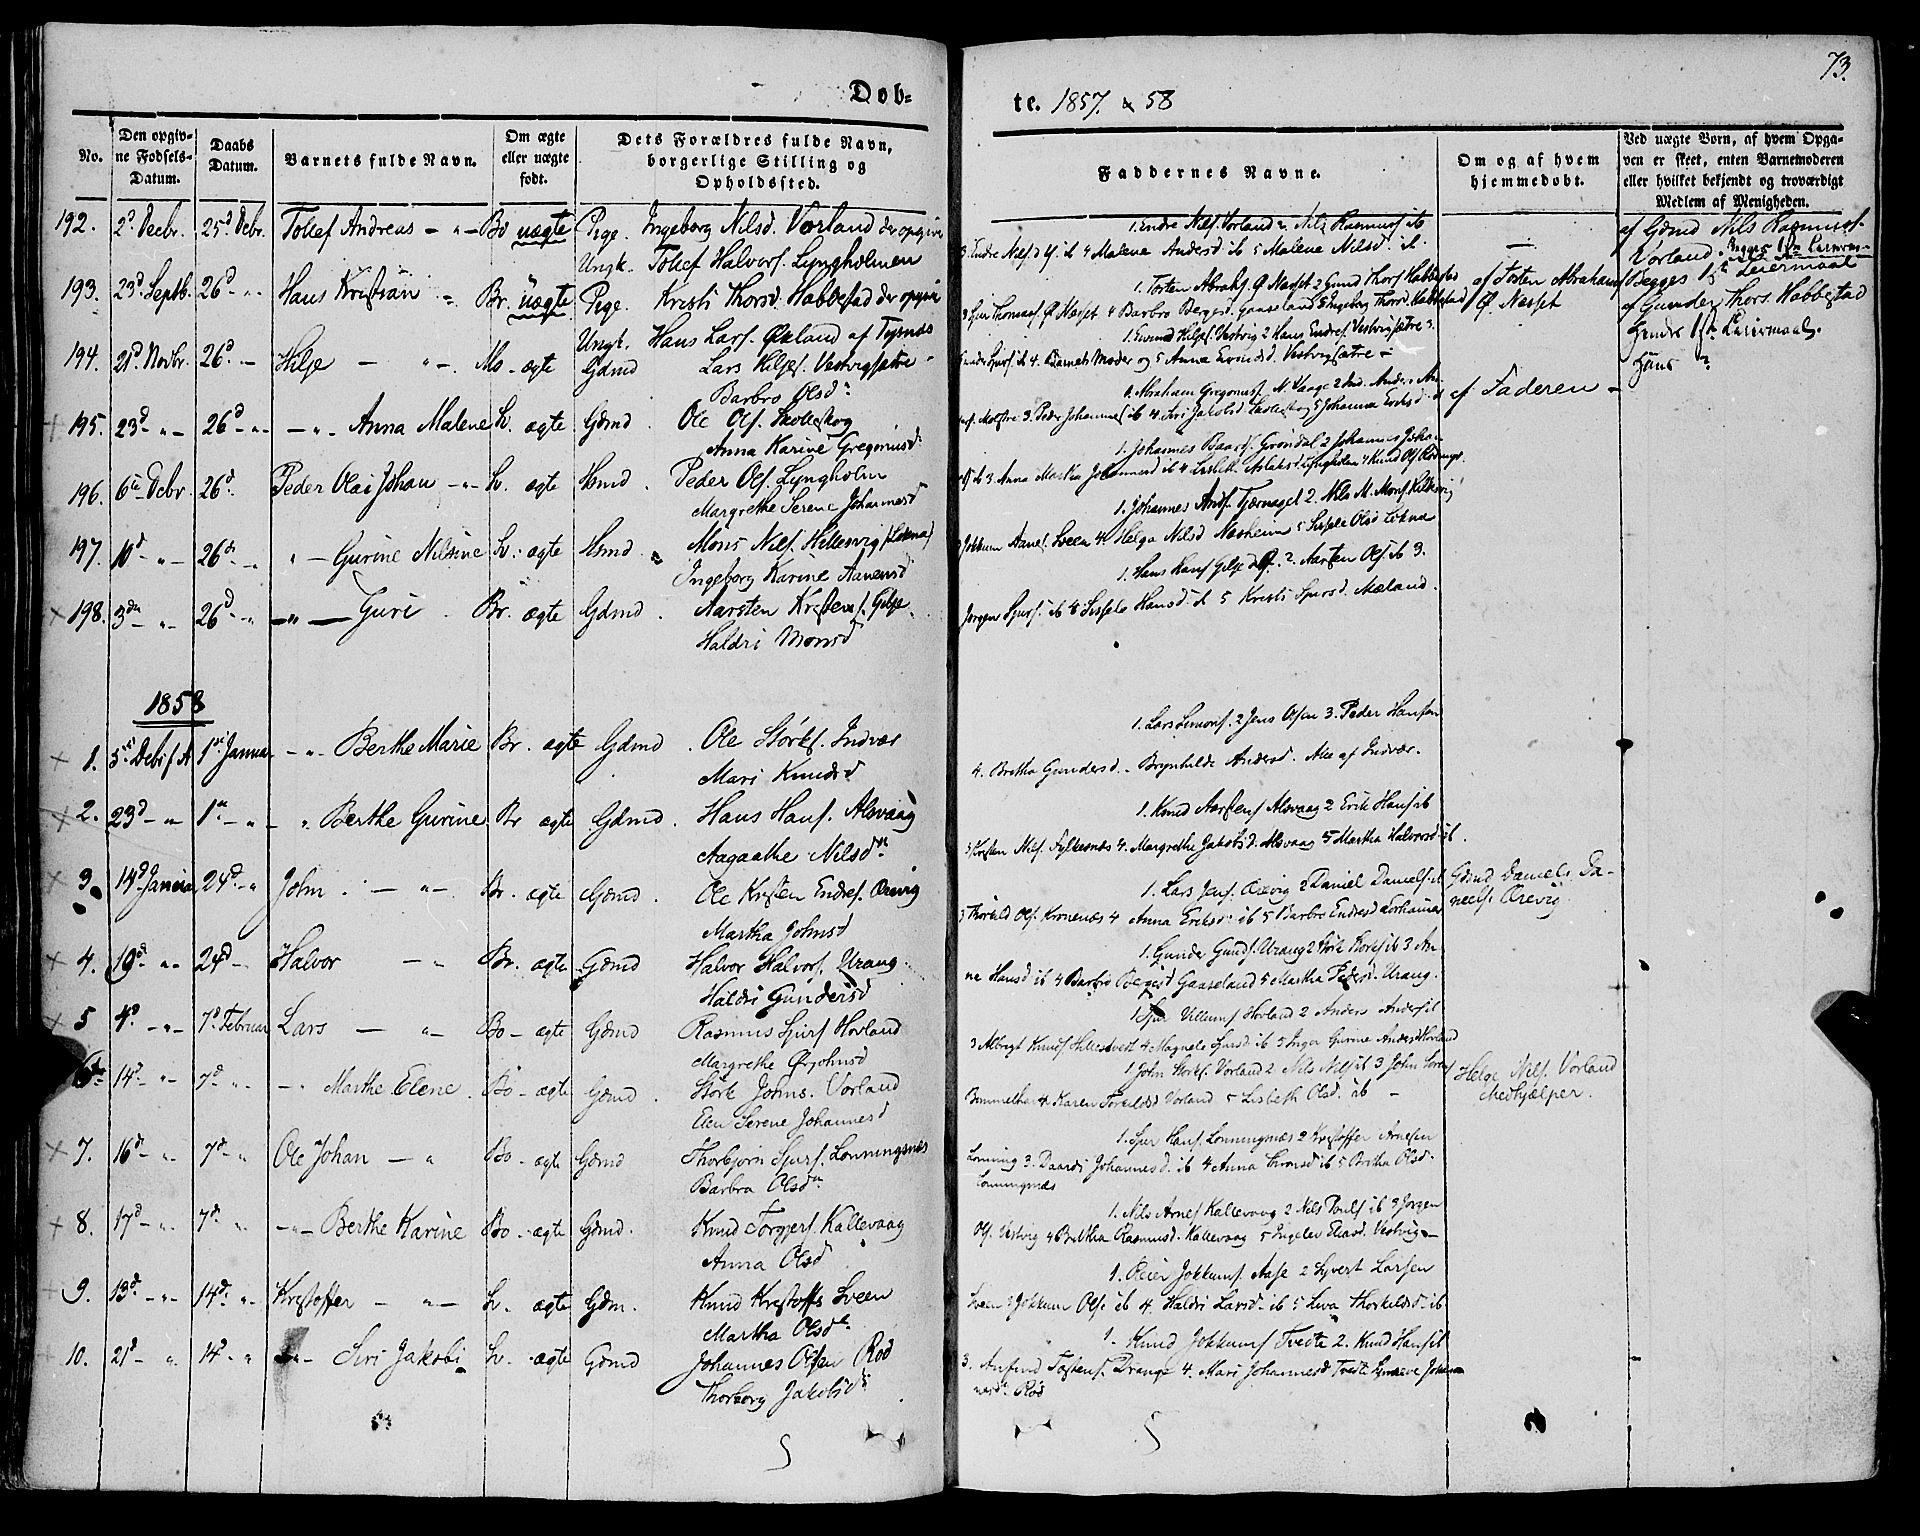 73.
Døb-
te. 1857. & 58
No.
Den opgiv-
ne Fødsels-
Datum.
Daabs
Datum.
Barnets fulde Navn.
Om ægte
eller uægte
født.
Dets Forældres fulde Navn,
borgerlige Stilling og
Opholdssted.
Faddernes Navne.
Om og af hvem
hjemmedøbt.
Ved uægte Børn, af hvem Opga-
ven er skeet, enten Barnemoderen
eller hvilket bekjendt og troværdigt
Medlem af Menigheden.
192. 2d Decbr. 25d Debr. Tollef Andreas - " - Bö uægte Pige. Ingeborg Nilsd. Vorland der opgiver
Ungk. Tollef Halvors. Lyngholmen
1. Endre Nels. Vorland 2. Nils Rasmus ib
4 Malene Andersd ib 5 Malene Nilsd. ib.
af Gdmd Nils Rasmus.
Vorland. Begges 1ste Leiermaal
193. 23d Septb. 26d - " - Hans Kristian " Br. uægte Pige. Kristi Thorsd. Habbestad der opgiver
Ungk. Hans Lars. Økland af Tysnæs
1. Torten Abrahs. Ø Næsset 2 Gund Thors Habbestad
3 Sjur Thomas. Ø Næsset 4 Barbro Bergesd. Gaaseland 5 Ingeborg Thorsd. Habbestad
af Torten Abraham
Ø. Næsset
Begges 1ste Leiermaal
af Gunder Thors. Habbestad
Hendes 1ste Leiermaal.
Hans
194. 21d Novbr. 26d - Helje - " - Mo - ægte Gdmd Lars Heljes. Vestvigsætre
Barbro Olsd.
1. Eivind Heljes. Vestvig 2 Hans Endres Vestvigsætre 3.
ib 4. Barnets Moder og 5 Anna Eivindsd. Vestvigsætre -
af Faderen -
195. 23d - " - 26d - " - - " - Anna Malene Sv. ægte Gdmd. Ole Ols.
Anna Karine Gregoriusd.
1. Abraham Gregorius. N. Vaage 2
Mølstre 3. Peder Johannes ib 4. Siri Jakobsd. 5 Johanna Eriksd. ib
196. 6te Debr. 26d - Peder Olai Johan - " - Sv. ægte Hsmd. Peder Ols. Lyngholm
Margrethe Serene Johannesd
1. Johannes Baards. Grøndal 2 Johannes Johan
nes ib 3. Anna Martha Johannesd ib 4 Lisbeth Aslaksd Lyngholm 4 Knud Ols
197. 10d - " - 26de - " " - Gurine Nilsine Sv. ægte Hsmd " Mons Nils. Hillesvig (Løkna)
Ingeborg Karine Aanensd
1. Johannes Tjernaget 2. Nils M. Mons.
3 Jokkum Aanes. Sveen 4. Helga Nilsd Næsheim 5 Sissele Olsd Løkna
198. 3die - " - 26d - " - " - Guri Br. ægte Gdmd. Aarsten Kristens. Gilje
Haldri Monsd
1. Hans Hans Gilje d.Y. 2. Aarsten Ols ib 3.
Jørgen Sjurs. ib 4 Sissele Hansd. ib 5 Kristi Sjursd. Mæland.
1858
1. 5te Deb: f.A 1ste Januar - " - Berthe Marie Br. ægte Gdmd. Ole Størks. Indvær
Mari Knudsd
1. Lars Simons. 2 Jens Olsen 3. Peder Hansen
4. Bretha Gundersd. - Brynhilde Andersd. Alle af Indvær.
2. 23d - " - 1ste - " - " Berthe Gurine Br ægte Gdmd. Hans Hans. Alsvaag
Aagaathe Nilsdtr
1. Knud Aarstens Alsvaag 2 Erik Hans ib
3 Kristen Nils. Fylkesnæs 4. Margrethe Jakobsd. Alsvaag 5 Martha Halvorsd ib.
3. 14d Januar 24d - " John - " - Br. ægte Gdmd. Ole Kristen Endres. Orevig
Martha Johnsd
1. Lars Jens. Orevig 2 Daniel Daniels. ib
3 Thorkild Ols. Kroknæs 4 Anna Eriksd. ib 5 Barbro Endresd
Gdmd Daniels Da-
niels. Orevig.
4. 19d - " - 24d - Halvor - " Br. ægte Gdmd Halvor Halvors. Urang.
Haldri Gundersd
1. Gunder Gunds. Urang 2 Størk Størks ib 3 An-
ne Hansd ib 4 Barbro Bergesd Gaaseland 5 Martha Pedersd. Urang.
5 4d - " - 7d Februar Lars - " - Bö - ægte Gdmd Rasmus Sjurs. Hovland
Margrethe Ørjohnsd
1 Sjur Villums Hovland 2 Anders Anders ib
3 Albregt Knuds Hillestvett 4 Magnele Sjursd ib 5 Inger Gurine Andersd Hovland
6te 14d - " - 7d - " - - " Marthe Elene. Bö - ægte Gdmd. Størk Johns. Vorland
Elen Serene Johannesd
1 John Størks. Vorland 2 Nils Nils ib 3 John
Bømmelhavn 4 Karen Torkildsd Vorland 5 Lisbeth Olsd. ib -
Helge Nils. Vorland
Medhjælper.
7. 16d - " - 7d - " Ole Johan - " Bö - ægte Gdmd Thorbjørn Sjurs. Lønningsnæs
Barbra Olsdtr
1. Sjur Hans. Lønningnæs 2 Kristoffer Arnesen
Lønning 3. Daardi Johannesd. ib 4 Anna ib 5 Bretha Olsd.
Lønningnæs
8. 17d - " - 7d. " - " - Berthe Karine Bö - ægte Gdmd. Knud Torgers. Kallevaag
Anna Olsd
1. Nils Arnes Kallevaag 2 Nils Pouls ib 3 Jørgen
Ols. Vestvig 4 Bretha Rasmusd. Kallevaag 5 Ingelev Eliasd. Vestvig -
9. 13d - " - 14d. " - Kristoffer - " - Sv. ægte Gdm. Knud Kristoffs Sveen
Martha Olsdr
1. Reier Jokkums. Aase 2 Syvert Larsen
Sveen 3 Jokkum Ols. ib 4. Haldri Larsd. ib 5 Siva Thorkildsd. ib
10. 21d - " 14d - " - " - Siri Jakobi Sv. - ægte Gdmd Johannes Olsen Rød
Thorborg Jakobsd.
1. Knud Jokkums Tvedte 2. Knud Hans ib
3. Anfind Tostens. Drange 4. Mari Johannesd Tvedt Synneve Johan-
nesd. Rød